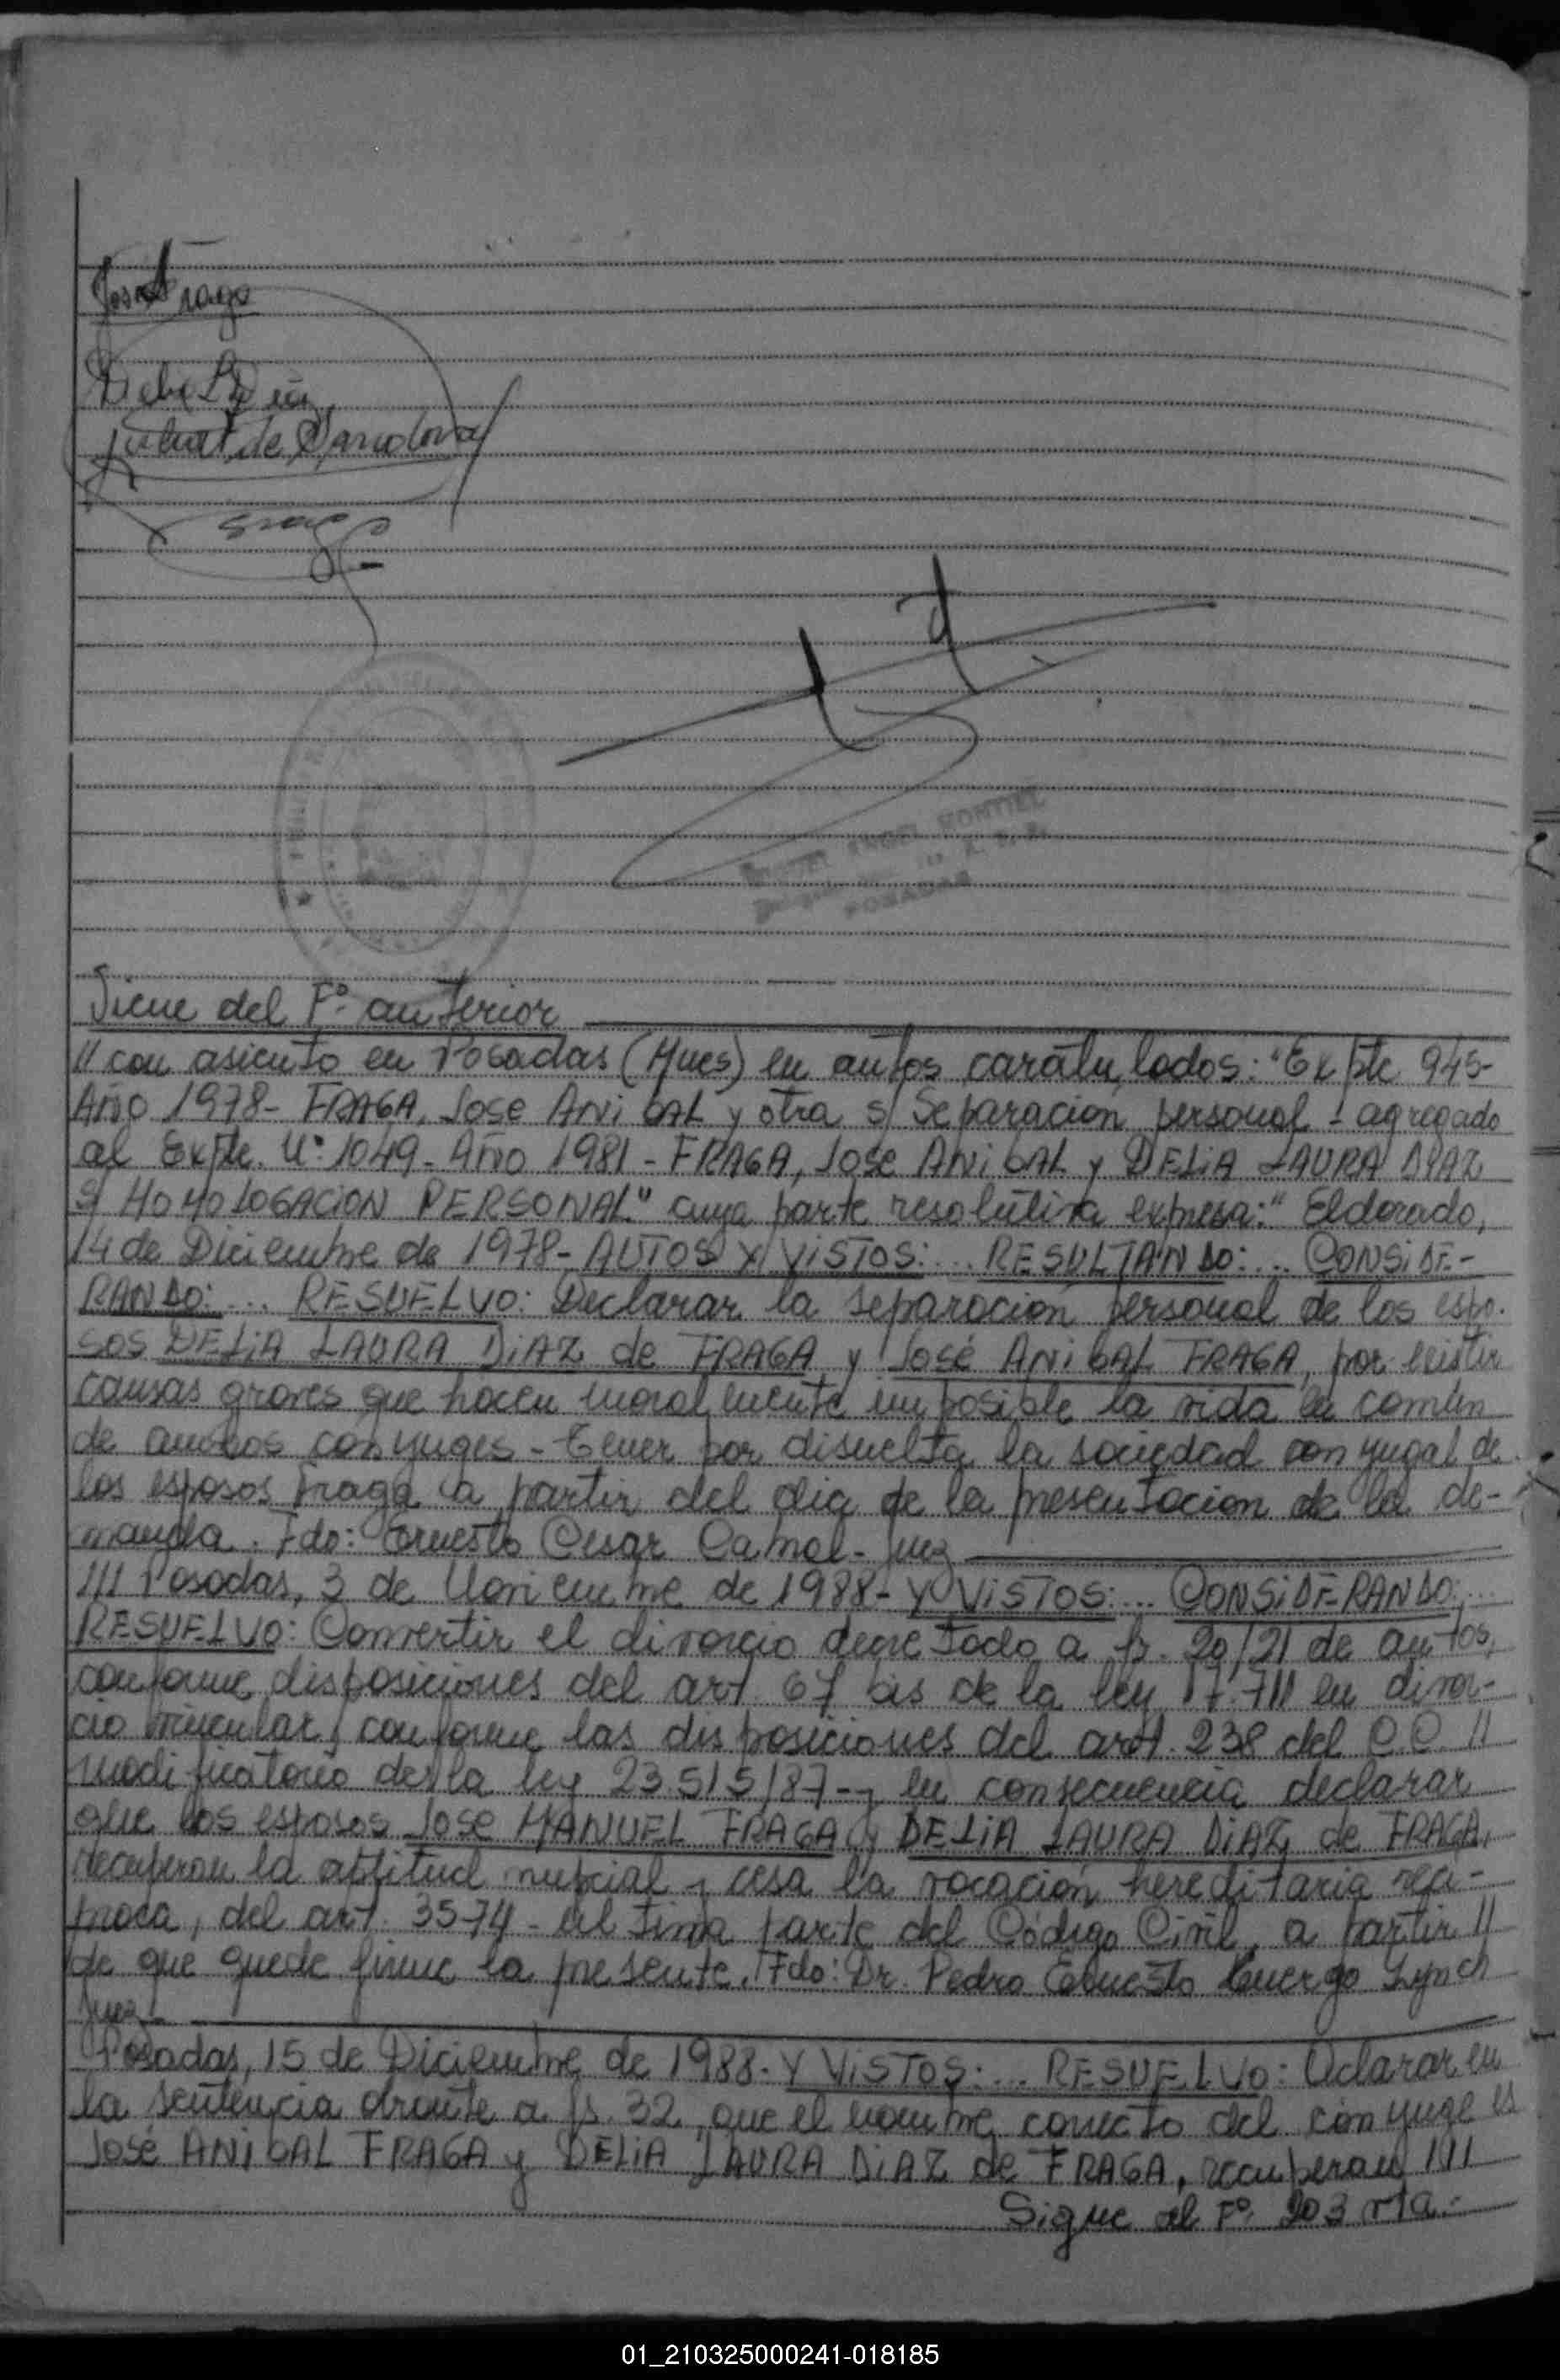 José A Fraga
Delia L Diaz
de Sandoval
Fraga
ANGEL MONTIEL
POSADAS
Viene del Fº anterior
// con asiento en Posadas (Mnes) en autos caratulados: "Expte 945-
Año 1978- FRAGA, José ANIBAL y otra s/ Separación personal - agregado
al Expte. Nº 1049- Año 1981- FRAGA, José ANIBAL y DELIA LAURA DIAZ
s/ HOMOLOGACION PERSONAL" cuya parte resolutiva expresa: "Eldorado,
14 de Diciembre de 1978- AUTOS Y VISTOS:... RESULTANDO:... CONSIDE-
RANDO:... RESUELVO: Declarar la separación personal de los espo-
sos DELIA LAURA DIAZ de FRAGA y José ANIBAL FRAGA, por existir
causas graves que hacen moralmente imposible la vida en común
de ambos conyuges- Tener por disuelta la sociedad conyugal de
los esposos Fraga a partir del dia de la presentacion de la de-
manda. Fdo: Ernesto Cesar Camol- Juez
/// Posadas, 3 de Noviembre de 1988- Y VISTOS:... CONSIDERANDO:...
RESUELVO: Convertir el divorcio decretado a fs. 20/21 de autos,
conforme disposiciones del art. 67 bis de la ley 17.711 en divor-
cio vincular, conforme las disposiciones del art. 238 del C.C. //
modificatorio de la ley 23.515/87- y en consecuencia declarar
que los esposos José MANUEL FRAGA y DELIA LAURA DIAZ de FRAGA,
recuperan la aptitud nupcial y cesa la vocación hereditaria reci-
proca, del art. 3574- última parte del Código Civil, a partir //
de que quede firme la presente. Fdo: Dr. Pedro Ernesto Cuergo Lynch
Juez-
Posadas, 15 de Diciembre de 1988- Y VISTOS:... RESUELVO: Aclarar en
la sentencia obrante a fs. 32, que el nombre correcto del cónyuge es
José ANIBAL FRAGA y DELIA LAURA DIAZ de FRAGA, recuperan ///
Sigue al Fº 203 vta.-
01_210325000241-018185